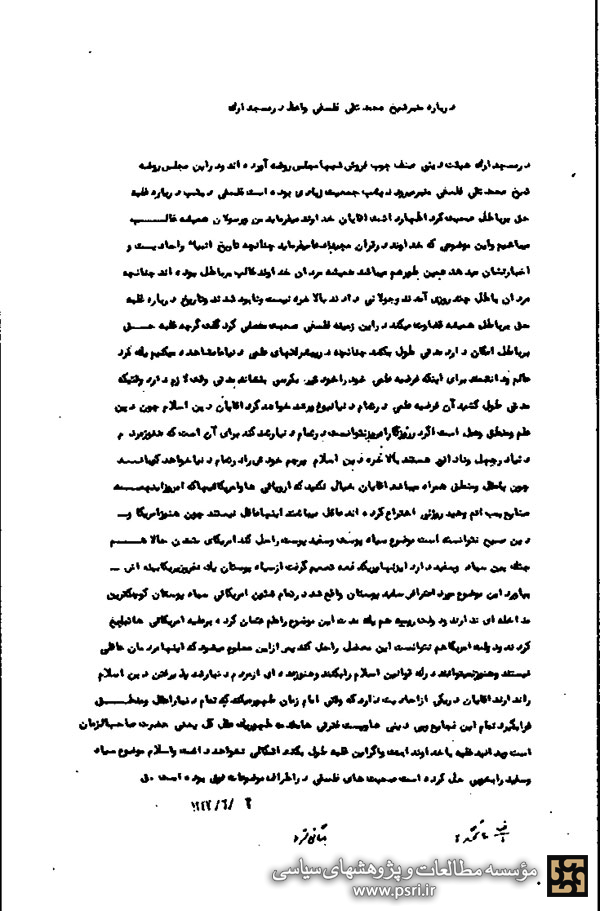 درباره منبر شیخ محمد تقی فلسفی واعظ در مسجد ارك
در مسجد ارك هیئت دینی صنف چوب فروش شبها مجلس روضه آورده اند و در این مجلس روضه
شیخ محمد تقی فلسفی منبر میرود دیشب جمعیت زیادی بوده است فلسفی دیشب درباره غلبه
حق بر باطل صحبت کرد اظهار داشت اقایان خداوند میفرماید من و رسولان همیشه غالب
میباشیم و این موضوعی که خداوند در قران مجید ما میفرماید چنانچه تاریخ انبیاء و احادیث و
اخبار نشان میدهد همین طور هم میباشد همیشه مردان خداوند غالب بر باطل بوده اند چنانچه
مردان باطل چند روزی آمدند و جولانی دادند بالاخره نیست و نابود شدند و تاریخ درباره غلبه
حق بر باطل همیشه قضاوت میکند در این زمینه فلسفی صحبت مفصلی کرد گفت گرچه غلبه حق
بر باطل امکان دارد مدتی طول بکشد چنانچه در پیشرفتهای علمی دنیا مشاهده میکنیم یك
دانشمند برای اینکه فرضیه علمی خود را بکرسی بنشاند مدتی وقت لازم دارد وقتیکه
مدتی طول کشید آن فرضیه علمی در تمام دنیا خواهد کرد اقایان دین اسلام چون دین
علم و منطق و عقل است اگر در روزگار امروز نتوانست در تمام دنیا رشد کند برای آن است که هنوز مردم
دنیا در جهل و نادانی هستند بالاخره دین اسلام پرچم خودش را در تمام دنیا خواهد کوبانید
چون با عقل و منطق همراه میباشد اقایان خیال نکنید که اروپائی ها و امریکائیها که امروز اینهمه
صنایع بمب اتم و هیدروژنی اختراع کرده اند عاقل میباشند اینها عاقل نیستند چون هنوز امریکا و
دین مسیح نتوانسته است موضوع سیاه پوست و سفید پوست را حل کند امریکای متمدن حالا هم
جنگ بین سیاه و سفید دارد ایزنهاور یکدفعه تصمیم گرفت از سیاه پوستان یك نفر وزیر کابینه اش
بیاورد این موضوع مورد اعتراض سفید پوستان واقع شد و در تمام شئون امریکائی سیاه پوستان کوچکترین
مداخله ای ندارند دولت روسیه هم یك مدت این موضوع را علم نشان کرده بر علیه امریکائی ها تبلیغ
کردند و دولت امریکا هم نتوانست این معضل را حل کند پس از این معلوم میشود که اینها مردمان عاقلی
نیستند و هنوز نمیتوانند درك قوانین اسلام را بکنند و هنوز عده ای از مردم دنیا رشد پذیرفتن دین اسلام
را ندارند اقایان در یکی از احادیث دارد که وقتی امام زمان ظهور میکند که تمام دنیا را عقل و منطق
فرا بگیرد تمام این فجایع و بی دینی ها و پست فطرتی ها مقدمه ظهور یك عقل کل یعنی حضرت صاحب الزمان
است و بدانید غلبه با خداوند است و اگر این غلبه طول بکشد اشکالی نخواهد داشت و اسلام موضوع سیاه
و سفید را بخوبی حل کرده است صحبت های فلسفی در اطراف موضوعات فوق بوده است ق
۱۳۴۲/۶/۶
بایگانی شود
مؤسسه مطالعات و پژوهشهای سیاسی
www.psri.ir